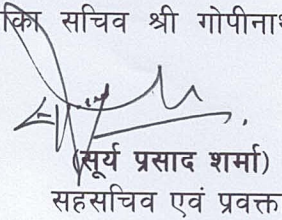 का सचिव श्री गोपीनाथ
(सूर्य प्रसाद शर्मा)
सहसचिव एवं प्रवक्त